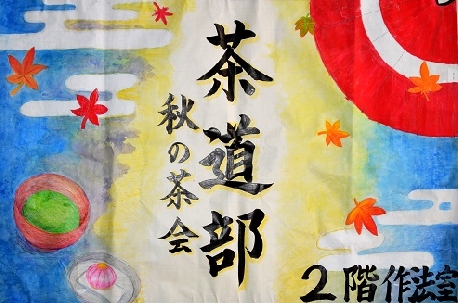 茶道部
秋の茶会
2階作法室